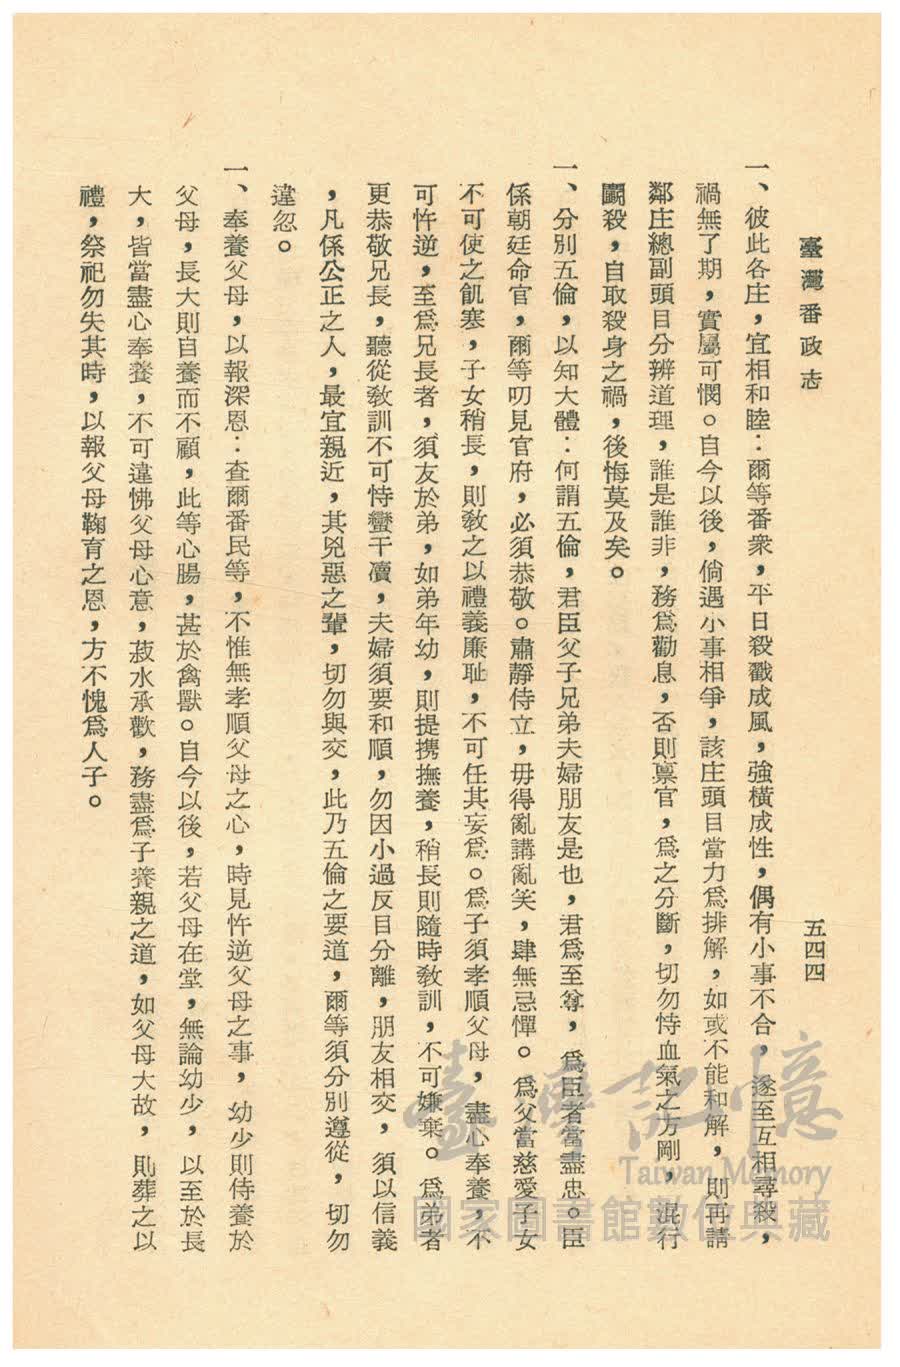 臺灣番政志
五四四
一、彼此各庄，宜相和睦：爾等番衆，平日殺戮成風，強橫成性，偶有小事不合，遂至互相尋殺，
禍無了期，實屬可憫。自今以後，倘遇小事相爭，該庄頭目當力爲排解，如或不能和解，則再請
鄰庄總副頭目分辨道理，誰是誰非，務爲勸息，否則稟官，爲之分斷，切勿恃血氣之方剛，混行
鬭殺，自取殺身之禍，後悔莫及矣。
一、分別五倫，以知大體：何謂五倫，君臣父子兄弟夫婦朋友是也，君爲至尊，爲臣者當盡忠。臣
係朝廷命官，爾等叨見官府，必須恭敬。肅靜侍立，毋得亂講亂笑，肆無忌憚。爲父當慈愛子女
不可使之飢寒，子女稍長，則敎之以禮義廉耻，不可任其妄爲。爲子須孝順父母，盡心奉養，不
可忤逆，至爲兄長者，須友於弟，如弟年幼，則提携撫養，稍長則隨時敎訓，不可嫌棄。爲弟者
更恭敬兄長，聽從敎訓不可恃蠻干凟，夫婦須要和順，勿因小過反目分離，朋友相交，須以信義
，凡係公正之人，最宜親近，其兇惡之輩，切勿與交，此乃五倫之要道，爾等須分別遵從，切勿
違忽。
一、奉養父母，以報深恩：查爾番民等，不惟無孝順父母之心，時見忤逆父母之事，幼少則侍養於
父母，長大則自養而不顧，此等心腸，甚於禽獸。自今以後，若父母在堂，無論幼少，以至於長
大，皆當盡心奉養，不可違怫父母心意，菽水承歡，務盡爲子養親之道，如父母大故，則葬之以
禮，祭祀勿失其時，以報父母鞠育之恩，方不愧爲人子。
臺灣記憶
Taiwan Memory
國家圖書館數位典藏